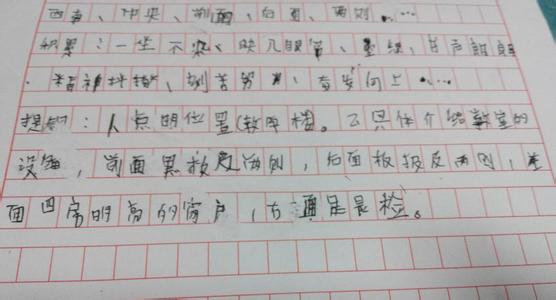 西南、中央、前面、后面、两则、…
积累：一尘不染、映入眼帘、墨绿、书声朗朗
、精神抖擞、刻苦努力、奋发向上…
提纲：人点明位置(教学楼。2具体介绍教室的
设施，前面黑板及两则，后面板报及两则，
面四扇明高的窗户，